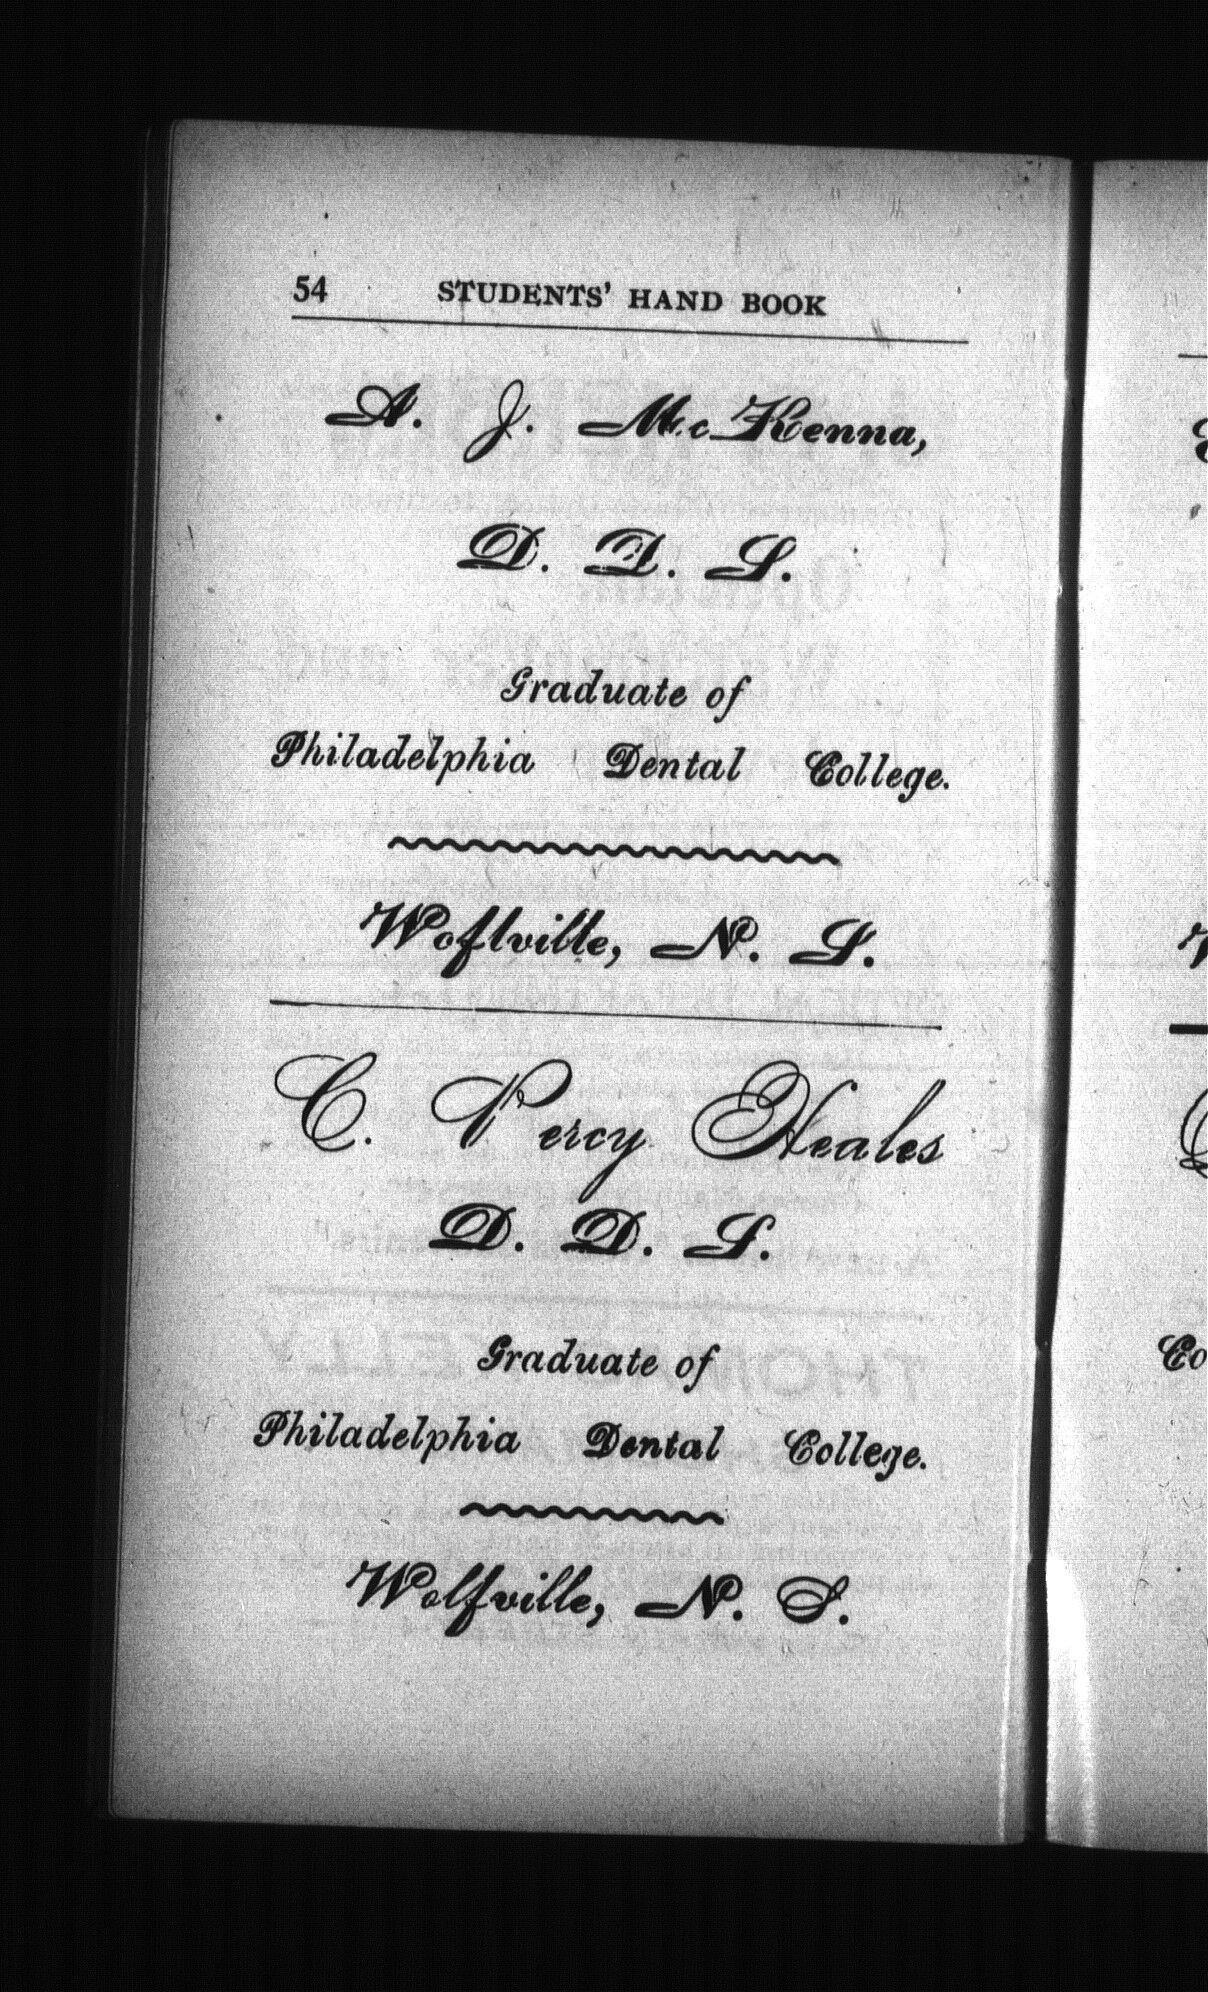 54 STUDENTS' HAND BOOK
A. J. McKenna,
D. D. S.
Graduate of
Philadelphia Dental College.
Woflville, N. S.
C. Percy Heales
D. D. S.
Graduate of
Philadelphia Dental College.
Wolfville, N. S.